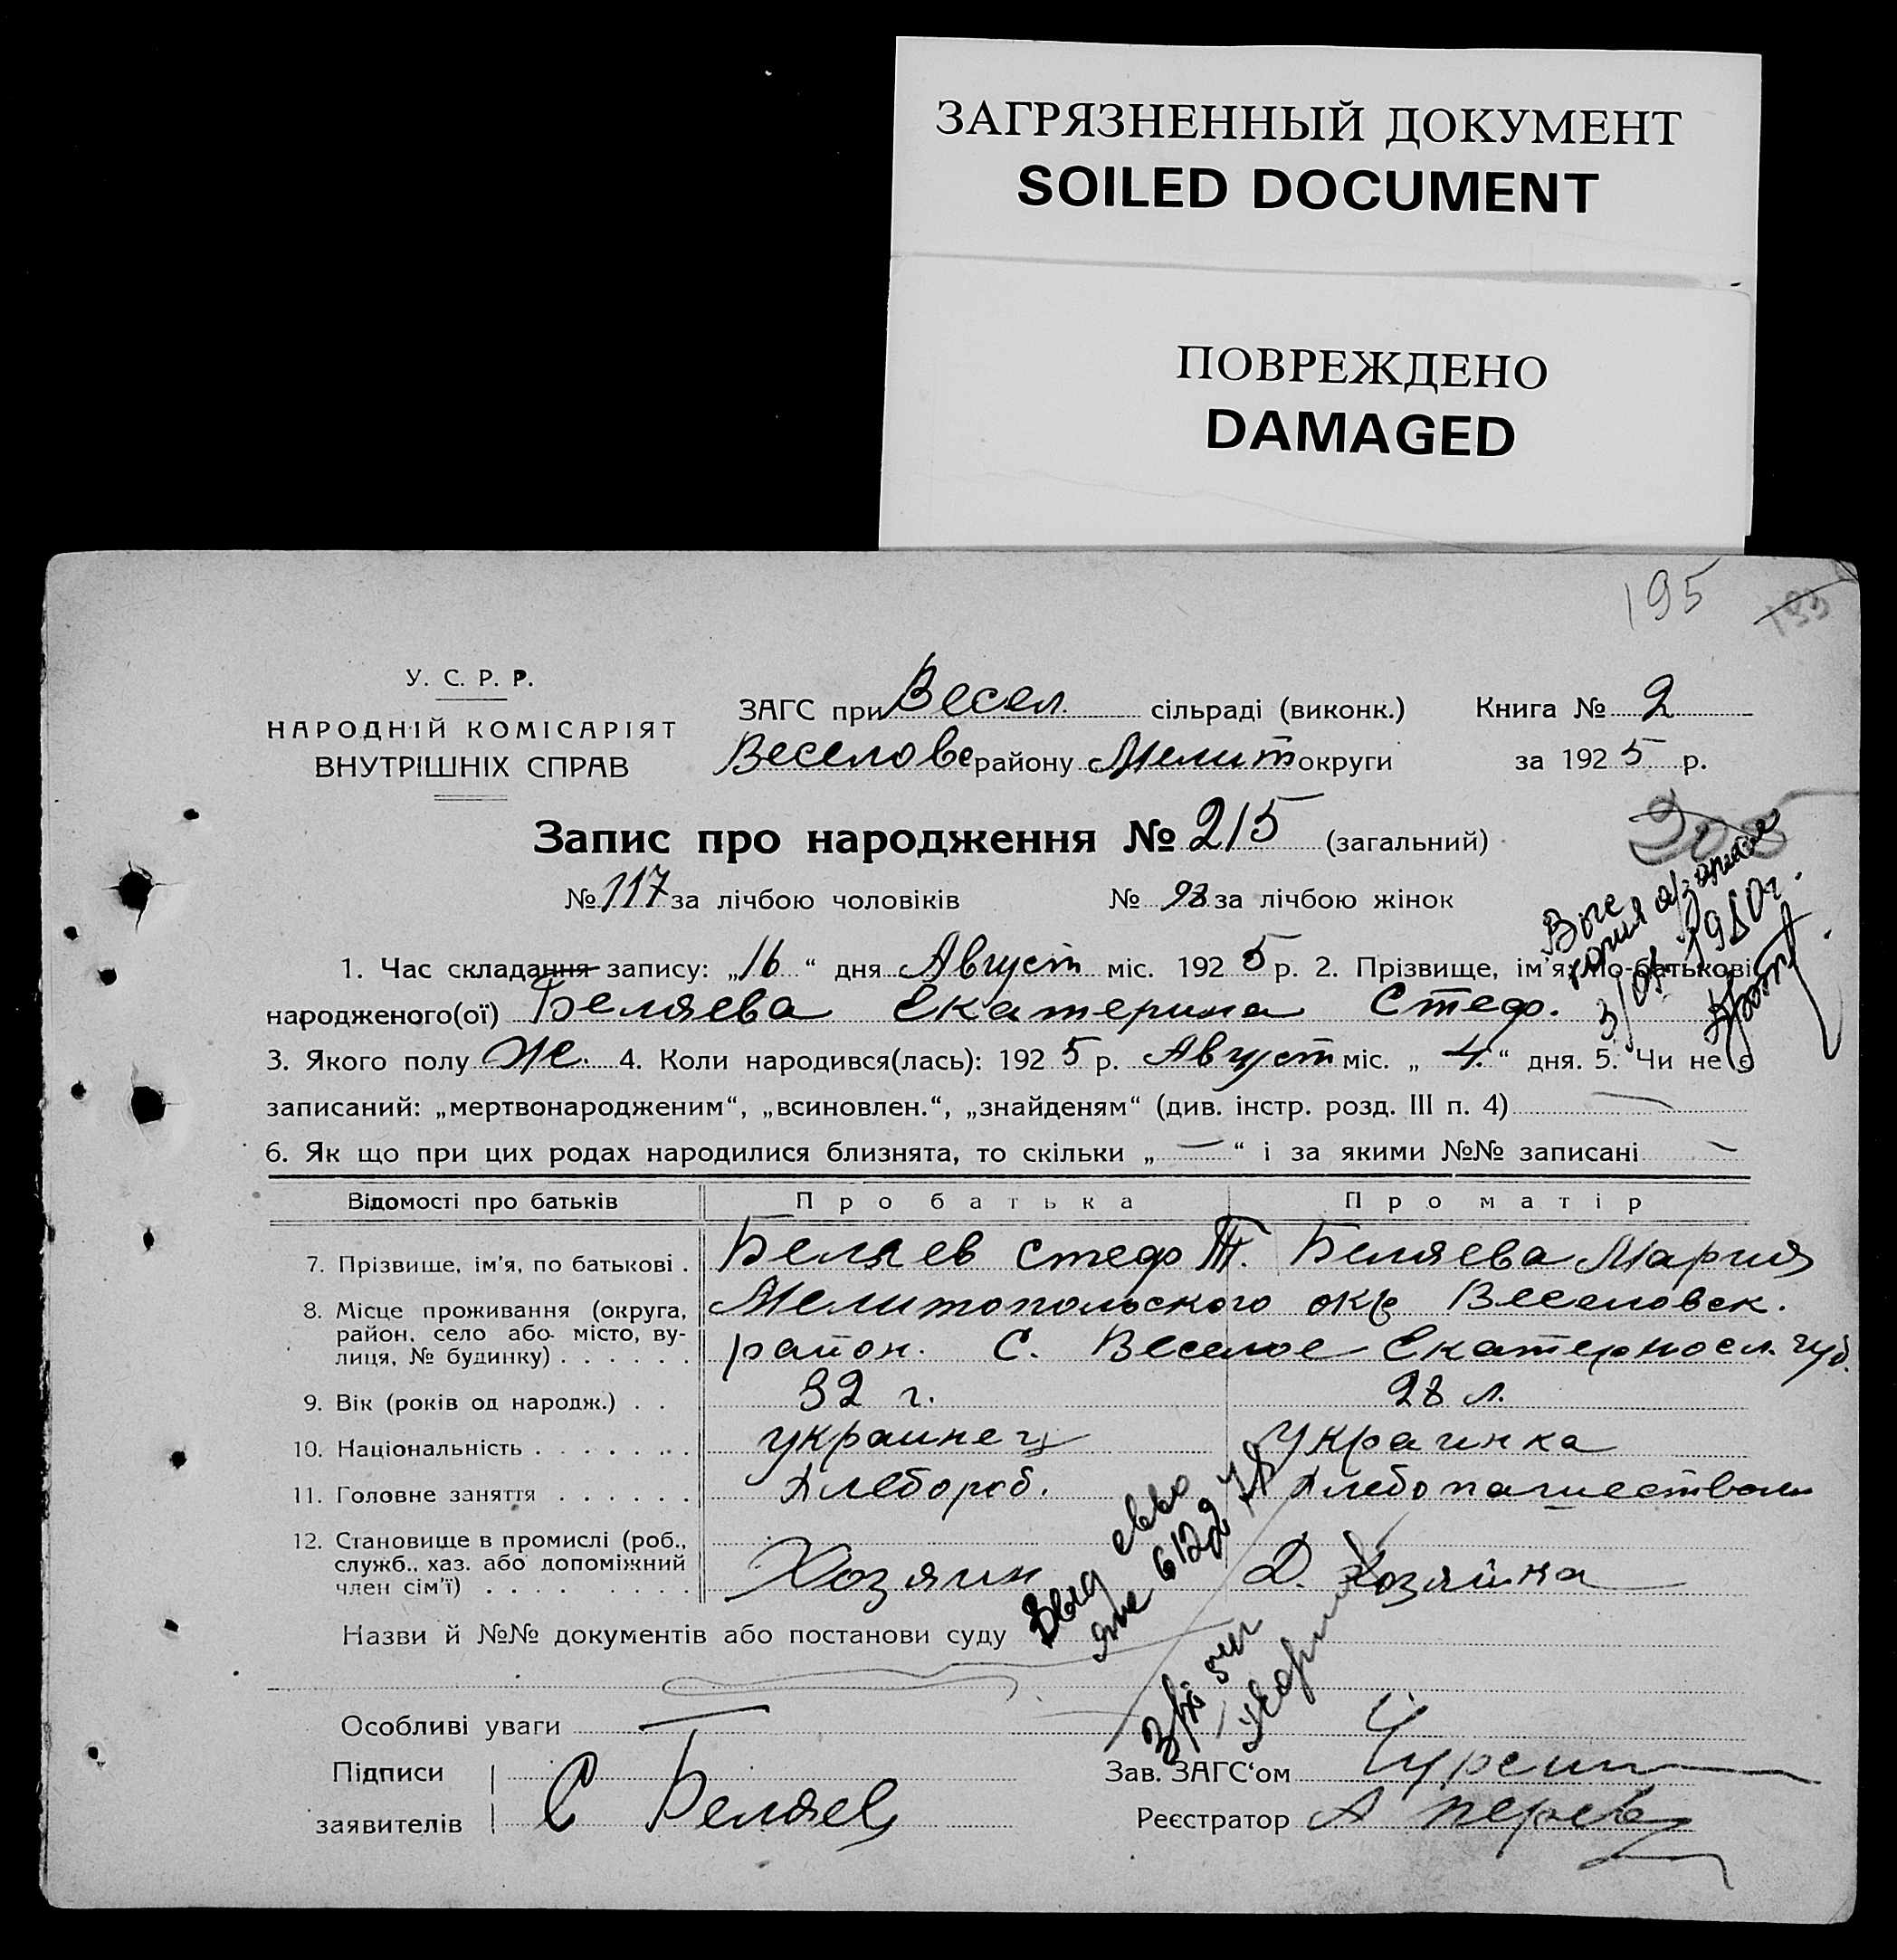 ЗАГРЯЗНЕННЫЙ ДОКУМЕНТ
SOILED DOCUMENT
ПОВРЕЖДЕНО
DAMAGED
195
У. С. Р. Р.
НАРОДНІЙ КОМІСАРІЯТ
ВНУТРІШНІХ СПРАВ
ЗАГС при Весел. сільраді (виконк.) Книга № 2
Веселовс району Мелит округи за 1925 р.
Запис про народження № 215 (загальний)
№ 117 за лічбою чоловіків № 98 за лічбою жінок
1. Час складання запису: „16“ дня Август міс. 1925 р. 2. Прізвище, ім'я, по-батькові
народженого(ої) Беляева Екатерина Стеф.
3. Якого полу Ж. 4. Коли народився(лась): 1925 р. Август міс. „4.“ дня. 5. Чи не є
записаний: „мертвонародженим“, „всиновлен.“, „знайденям“ (див. інстр. розд. III п. 4) —
6. Як що при цих родах народилися близнята, то скільки „—“ і за якими №№ записані —
Відомості про батьків Про батька Про матір
7. Прізвище, ім'я, по батькові . Беляев Стеф Т. Беляева Мария
8. Місце проживання (округа, Мелитопольского окр Веселовск.
район, село або місто, ву-
лиця, № будинку) . . . . . . район. С. Веселое Екатериносл. губ.
9. Вік (років од народж.) . . 32 г. 28 л.
10. Національність . . . . . . . украинец украинка
11. Головне заняття . . . . . . Хлебороб. Хлебопашеством
12. Становище в промислі (роб.,
служб., хаз. або допоміжний
член сім'ї) . . . . . . . . Хозяин Д. Хозяйка
Назви й №№ документів або постанови суду
Особливі уваги —
Підписи
заявителів С Беляев
Зав. ЗАГС'ом
Реєстратор А